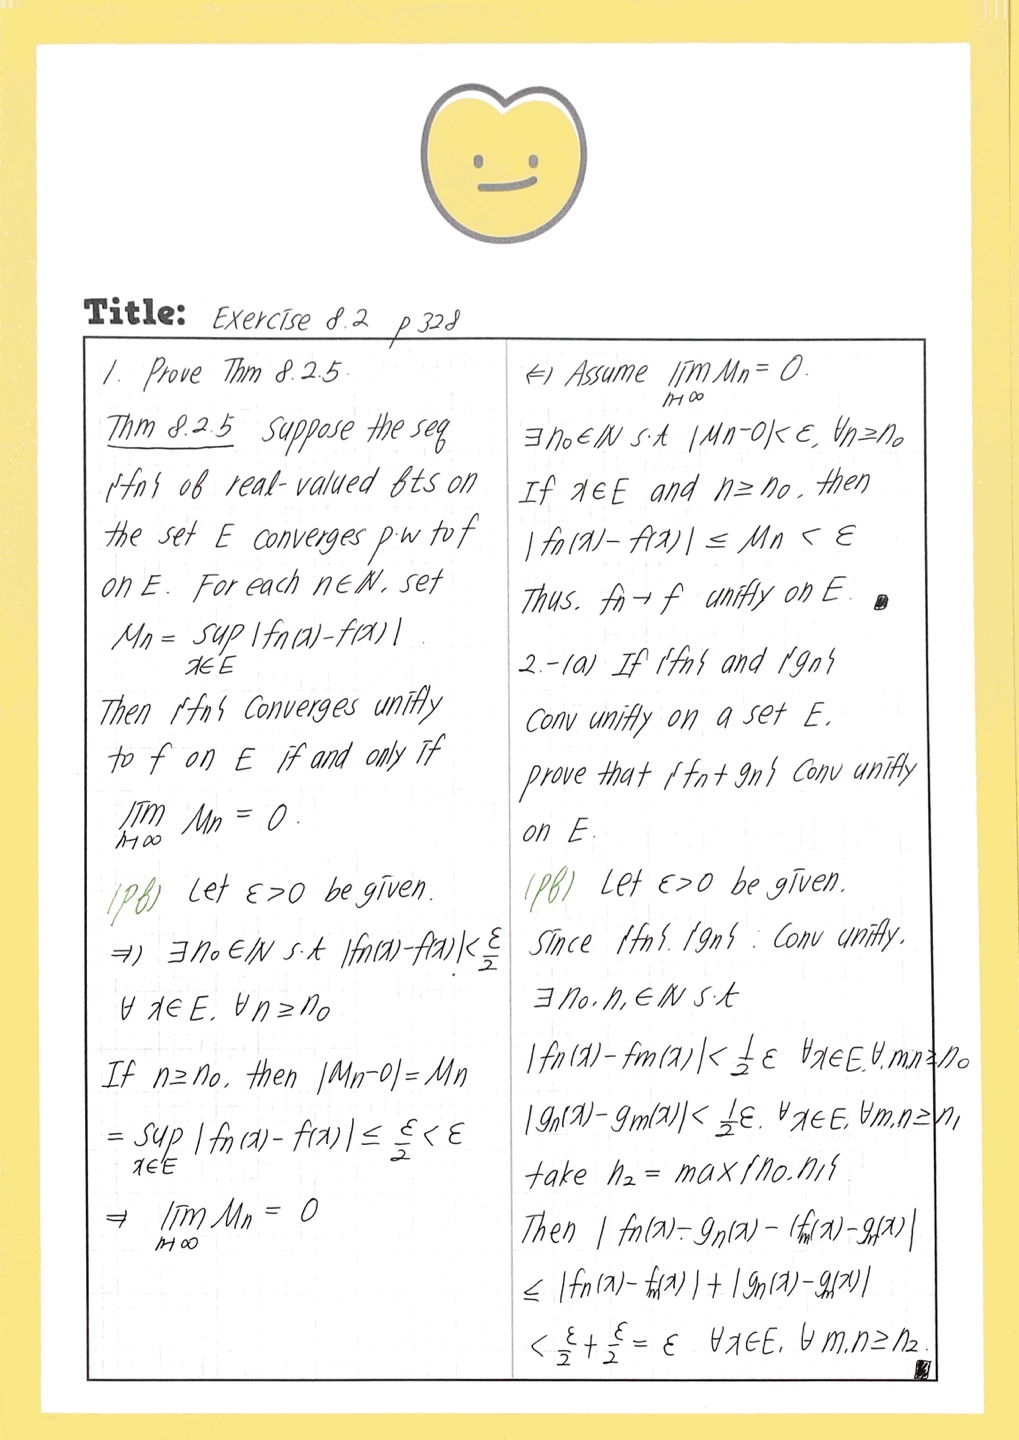 Title: Exercise 8.2 p328
1. Prove Thm 8.2.5.
Thm 8.2.5 Suppose the seq
{fn} of real-valued fts on
the set E converges p.w to f
on E. For each n∈N, set
Mn = sup |fn(x)-f(x)|.
x∈E
Then {fn} Converges unifly
to f on E if and only if
lim Mn = 0.
n→∞
(pf) Let ε>0 be given.
⇒) ∃n₀∈N s.t |fn(x)-f(x)|< ε/2
∀ x∈E, ∀n≥n₀
If n≥n₀, then |Mn-0| = Mn
= sup |fn(x)-f(x)| ≤ ε/2 < ε
x∈E
⇒ lim Mn = 0
n→∞
⇐) Assume lim Mn = 0.
n→∞
∃n₀∈N s.t |Mn-0|< ε, ∀n≥n₀
If x∈E and n≥n₀, then
|fn(x)-f(x)| ≤ Mn < ε
Thus, fn→f unifly on E. ■
2.-(a) If {fn} and {gn}
Conv unifly on a set E,
prove that {fn+gn} Conv unifly
on E.
(pf) Let ε>0 be given.
Since {fn}, {gn} : Conv unifly,
∃n₀, n₁∈N s.t
|fn(x)-fm(x)|< 1/2 ε ∀x∈E, ∀.m,n≥n₀
|gn(x)-gm(x)|< 1/2 ε, ∀x∈E, ∀m,n≥n₁
take n₂ = max{n₀, n₁}
Then | fn(x)-gn(x)-(fm(x)-gm(x)|
≤ |fn(x)-fm(x)| + |gn(x)-gm(x)|
< ε/2 + ε/2 = ε ∀x∈E, ∀ m,n≥n₂.
■